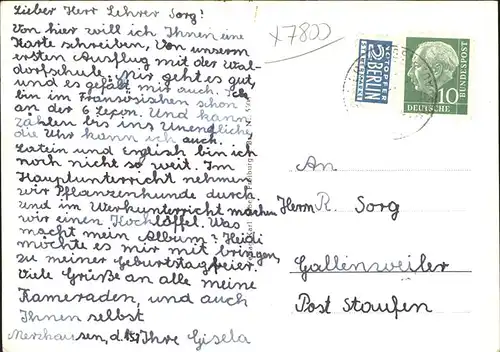 Lieber Herr Lehrer Sorg!
Von hier will ich Ihnen eine
Karte schreiben, Von unserm
ersten Ausflug mit der Wal-
dorfschule. Mir geht es gut,
und es gefällt mir auch. Ich
bin im Französischen schon
an der 6 Leçon. Und kann
zählen bis ins Unendliche
die Uhr kann ich auch.
Latein und Englisch bin ich
noch nicht so weit. Im
Hauptunterricht nehmen
wir Pflanzenkunde durch
und im Werkunterricht machen
wir einen Kochlöffel. Was
macht mein Album? Heidi
möchte es mir mit bringen,
zu meiner Geburtstagfeier.
Viele Grüße an alle meine
Kameraden, und auch
Ihnen selbst
Merzhausen, d. Ihre Gisela
x7800
NOTOPFER
2 BERLIN
STEUERMARKE
DEUTSCHE
BUNDESPOST
10
An
Herrn R. Sorg
Gallenweiler
Post Staufen